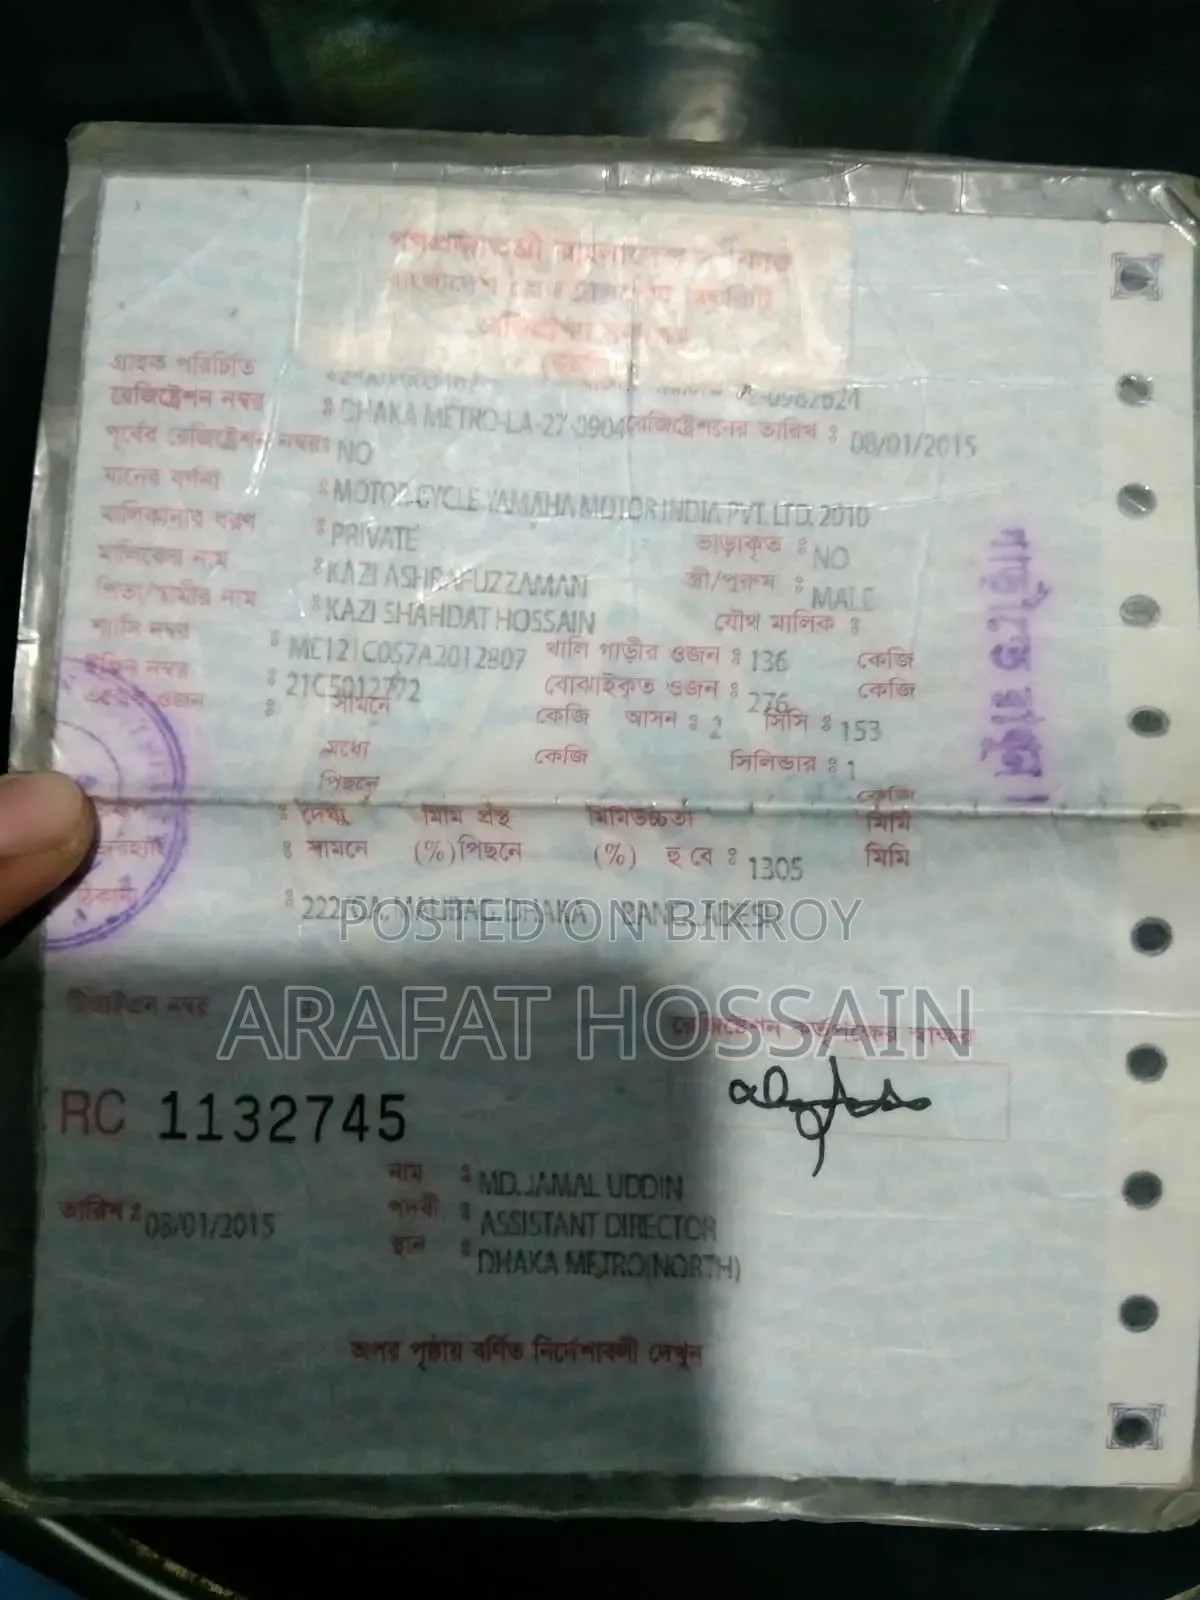 গ্রাহক পরিচিতি
রেজিষ্ট্রেশন নম্বর : DHAKA METRO-LA-27-3904 রেজিষ্ট্রেশনের তারিখ : 08/01/2015
পূর্বের রেজিষ্ট্রেশন নম্বর : NO
যানের বর্ণনা : MOTOR CYCLE YAMAHA MOTOR INDIA PVT. LTD. 2010
মালিকানার ধরণ : PRIVATE ভাড়াকৃত : NO
মালিকের নাম : KAZI ASHRAFUZZAMAN স্ত্রী/পুরুষ : MALE
পিতা/স্বামীর নাম : KAZI SHAHDAT HOSSAIN যৌথ মালিক :
চ্যাসি নম্বর : ME121C0G7A2012807 খালি গাড়ীর ওজন : 136 কেজি
ইঞ্জিন নম্বর : 21C5012772 বোঝাইকৃত ওজন : 276 কেজি
ওজন : সামনে কেজি আসন : 2 সিসি : 153
মধ্যে কেজি সিলিন্ডার : 1
পিছনে কেজি
: দৈর্ঘ্য মিমি প্রস্থ মিমি উচ্চতা মিমি
: সামনে (%) পিছনে (%) হু বে : 1305 মিমি
ঠিকানা : MALIBAG, DHAKA BANGLADESH
POSTED ON BIKROY
ARAFAT HOSSAIN
টিআইএন নম্বর
রেজিষ্ট্রেশন কর্তৃপক্ষের স্বাক্ষর
RC 1132745
নাম : MD. JAMAL UDDIN
তারিখ : 08/01/2015 পদবী : ASSISTANT DIRECTOR
স্থান : DHAKA METRO(NORTH)
অপর পৃষ্ঠায় বর্ণিত নির্দেশাবলী দেখুন
গাড়ীতে রাখুন।